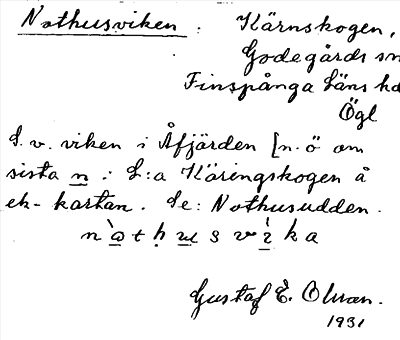 Nothusviken : Kärnskogen,
Godegårds sn
Finspånga Läns hd
Ögl
S. v. viken i Åfjärden [n. ö om
sista n. : L:a Käringskogen å
ek-kartan. Se: Nothusudden.
n ò t h u s v ì k a
Gustaf E. Olsson.
1931